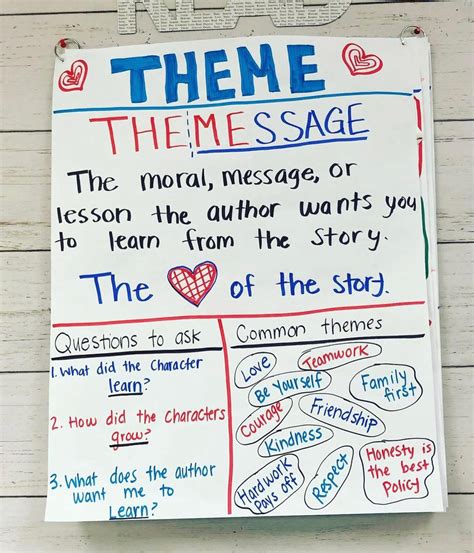 READ
THEME
THEMESSAGE
The moral, message, or
lesson the author wants you
to learn from the story.
The of the story.
Questions to ask
1. What did the Character
learn?
2. How did the characters
grow?
3. What does the author
want me to
Learn?
Common themes
Love
Teamwork
Be Yourself
Family
first
Courage
Friendship
Kindness
Hardwork
Pays off
Respect
Honesty is
the best
Policy